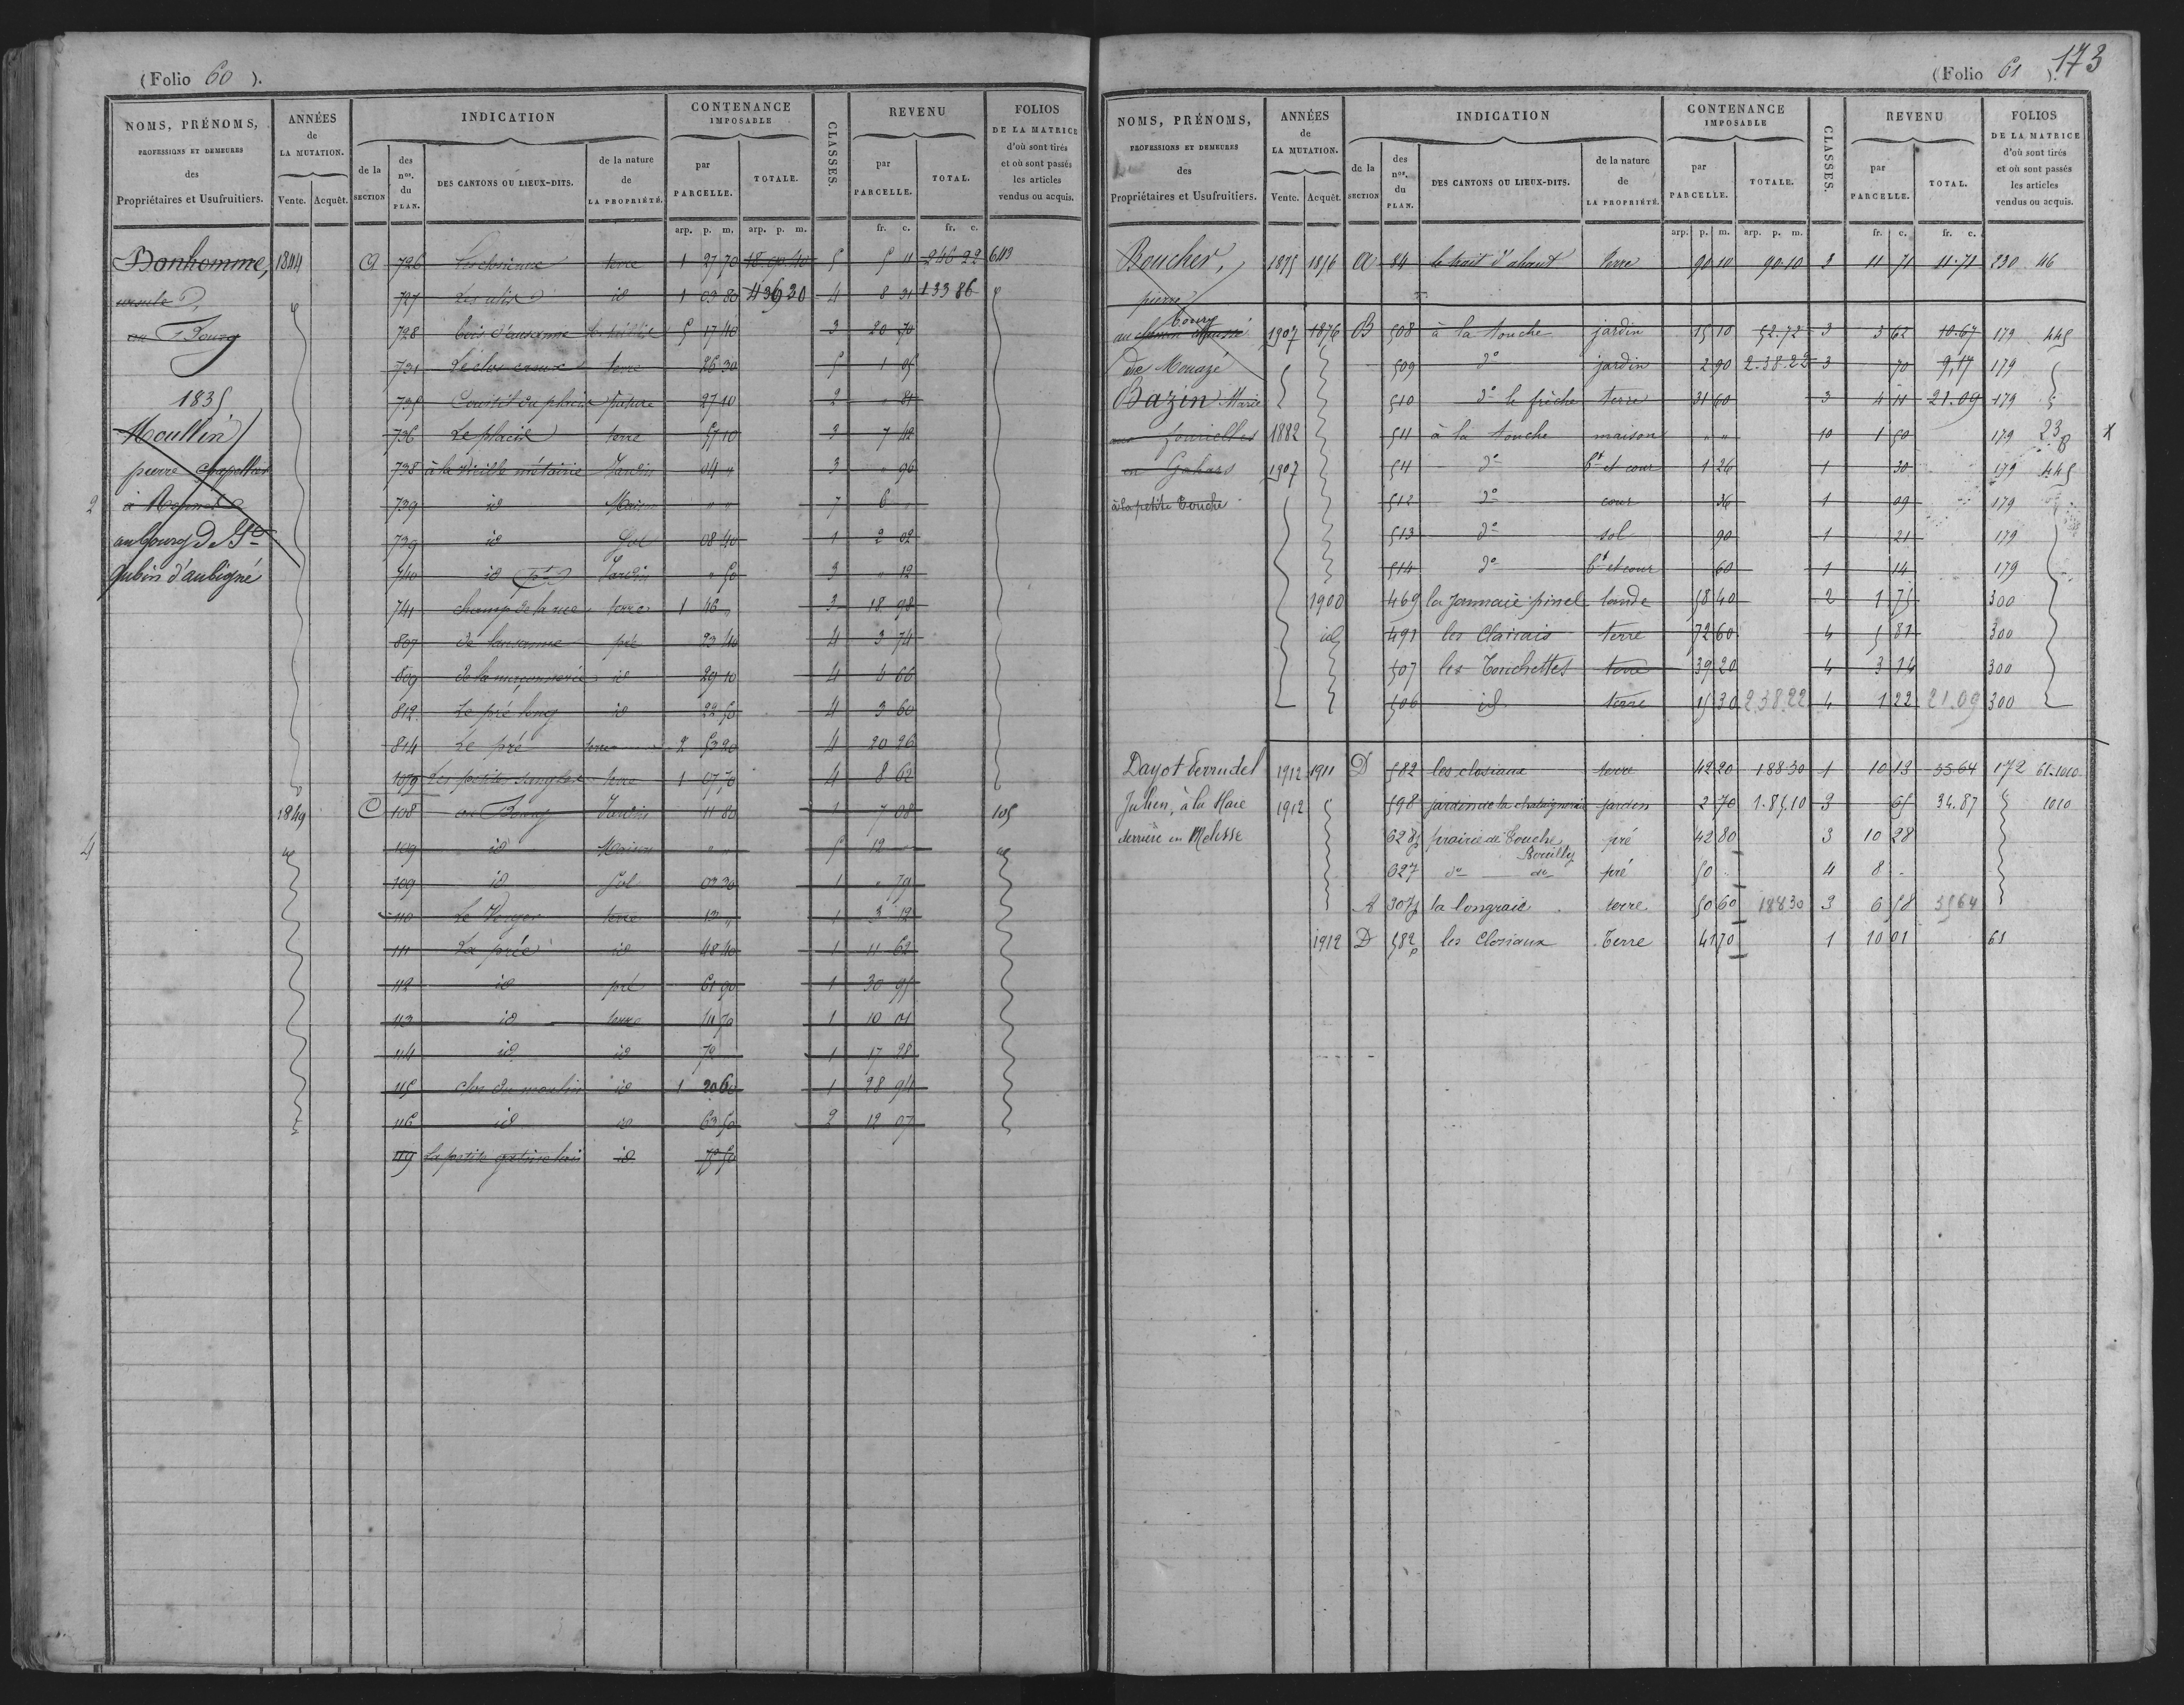 (Folio 60 ).
NOMS, PRÉNOMS,
PROFESSIONS ET DEMEURES
des
Propriétaires et Usufruitiers.
ANNÉES
de
LA MUTATION.
Vente. Acquêt.
INDICATION
de la
SECTION
des
nos.
du
PLAN.
DES CANTONS OU LIEUX-DITS.
de la nature
de
LA PROPRIÉTÉ.
CONTENANCE
IMPOSABLE
par
PARCELLE.
TOTALE.
CLASSES.
REVENU
par
PARCELLE.
TOTAL.
FOLIOS
DE LA MATRICE
d'où sont tirés
et où sont passés
les articles
vendus ou acquis.
arp. p. m. arp. p. m. fr. c. fr. c.
Bonhomme, 1844 A 726 Les closieaux terre 1 27 70 18 60 40 5 5 11 246 22 643
ursule 727 Les id 1 03 80 4 36 30 4 8 31 133 86
au Bourg 728 bois d'ausanne b. taillis 5 17 40 3 20 70
731 Le clos creux terre 26 30 5 1 05
1835 735 du placis pature 27 10 2 " 81
Moullin 736 Le placis terre 57 10 3 7 42
pierre chapellier 738 à la vieille métairie Jardin 04 " 3 " 96
2 à Rennes 739 id Maison " " 7 6 "
au bourg de St 739 id Sol 08 40 1 2 02
Aubin d'aubigné 740 id Jardin " 50 3 " 12
741 champ de la rue terre 1 46 " 3 18 98
807 de lausanne pré 23 40 4 3 74
809 id 29 10 4 4 66
812 Le pré long id 22 50 4 3 60
814 Le pré terre 2 53 20 4 20 26
1079 Les petites sangles terre 1 07 70 4 8 62
1849 C 108 au Bourg Jardin 11 80 1 7 08 105
4 109 id Maison " " 5 12 "
109 id Sol 03 30 1 " 79
110 Le Verger terre 13 " 1 3 12
111 La prée id 48 40 1 11 62
112 id pré 61 90 1 30 95
113 id terre 41 70 1 10 01
114 id id 72 1 17 28
115 clos du moulin id 1 20 60 1 28 94
116 id id 63 50 2 12 07
119 La petite id 75 50
(Folio 61 ). 173
NOMS, PRÉNOMS,
PROFESSIONS ET DEMEURES
des
Propriétaires et Usufruitiers.
ANNÉES
de
LA MUTATION.
Vente. Acquêt.
INDICATION
de la
SECTION
des
nos.
du
PLAN.
DES CANTONS OU LIEUX-DITS.
de la nature
de
LA PROPRIÉTÉ.
CONTENANCE
IMPOSABLE
par
PARCELLE.
TOTALE.
CLASSES.
REVENU
par
PARCELLE.
TOTAL.
FOLIOS
DE LA MATRICE
d'où sont tirés
et où sont passés
les articles
vendus ou acquis.
arp. p. m. arp. p. m. fr. c. fr. c.
Boucher, 1875 1876 A 84 le trait d'ahaut terre 90 10 90 10 3 11 71 11.71 330 46
pierre
bourg
au 1907 1876 B 508 à la touche jardin 15 10 52.72 3 3 62 10.67 179 445
de Mouazé 509 do jardin 2 90 2.38.22 3 70 9,17 179
Bazin Marie 510 do le frèche terre 31 60 3 4 11 21.09 179
aux 1882 511 à la touche maison " " 10 1 50 179 23 X
en Gahard 1907 511 do bt et cour 1 26 1 30 179 445
à la petite Touche 512 do cour 36 1 09 179
513 do sol 90 1 21 179
514 do bt et cour 60 1 14 179
1900 469 la Jannaie pinel lande 58 40 2 1 75 300
id 491 les Clairais terre 72 60 4 5 81 300
507 les Touchettes terre 39 20 4 3 14 300
506 id terre 15 30 2 38 22 4 1 22 21.09 300
Dayot Verrudel 1912 1911 D 582 les closiaux terre 42 20 188 30 1 10 13 35 64 172 61-1010
Julien, à la Haie 1912 598 jardin de la chataigneraie jardin 2 70 1.85.10 3 65 34.87 1010
derrière en Melesse 628p prairie de Touche pré 42 80 3 10 28
Rouilly
627 do do pré 50 . 4 8 -
A 307p la longraie terre 50 60 188 30 3 6 58 35 64
1912 D 582p les Closiaux Terre 41 70 1 10 01 61